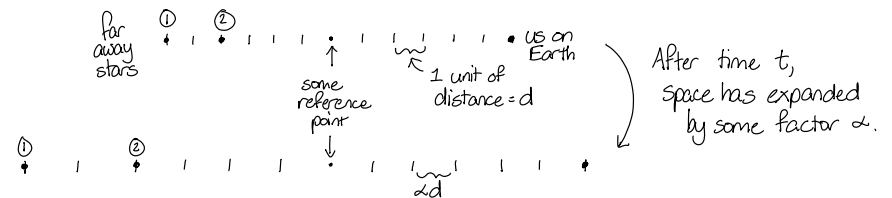 far
away
stars
①
②
us on
Earth
some
reference
point
1 unit of
distance = d
After time t,
space has expanded
by some factor α.
①
②
αd